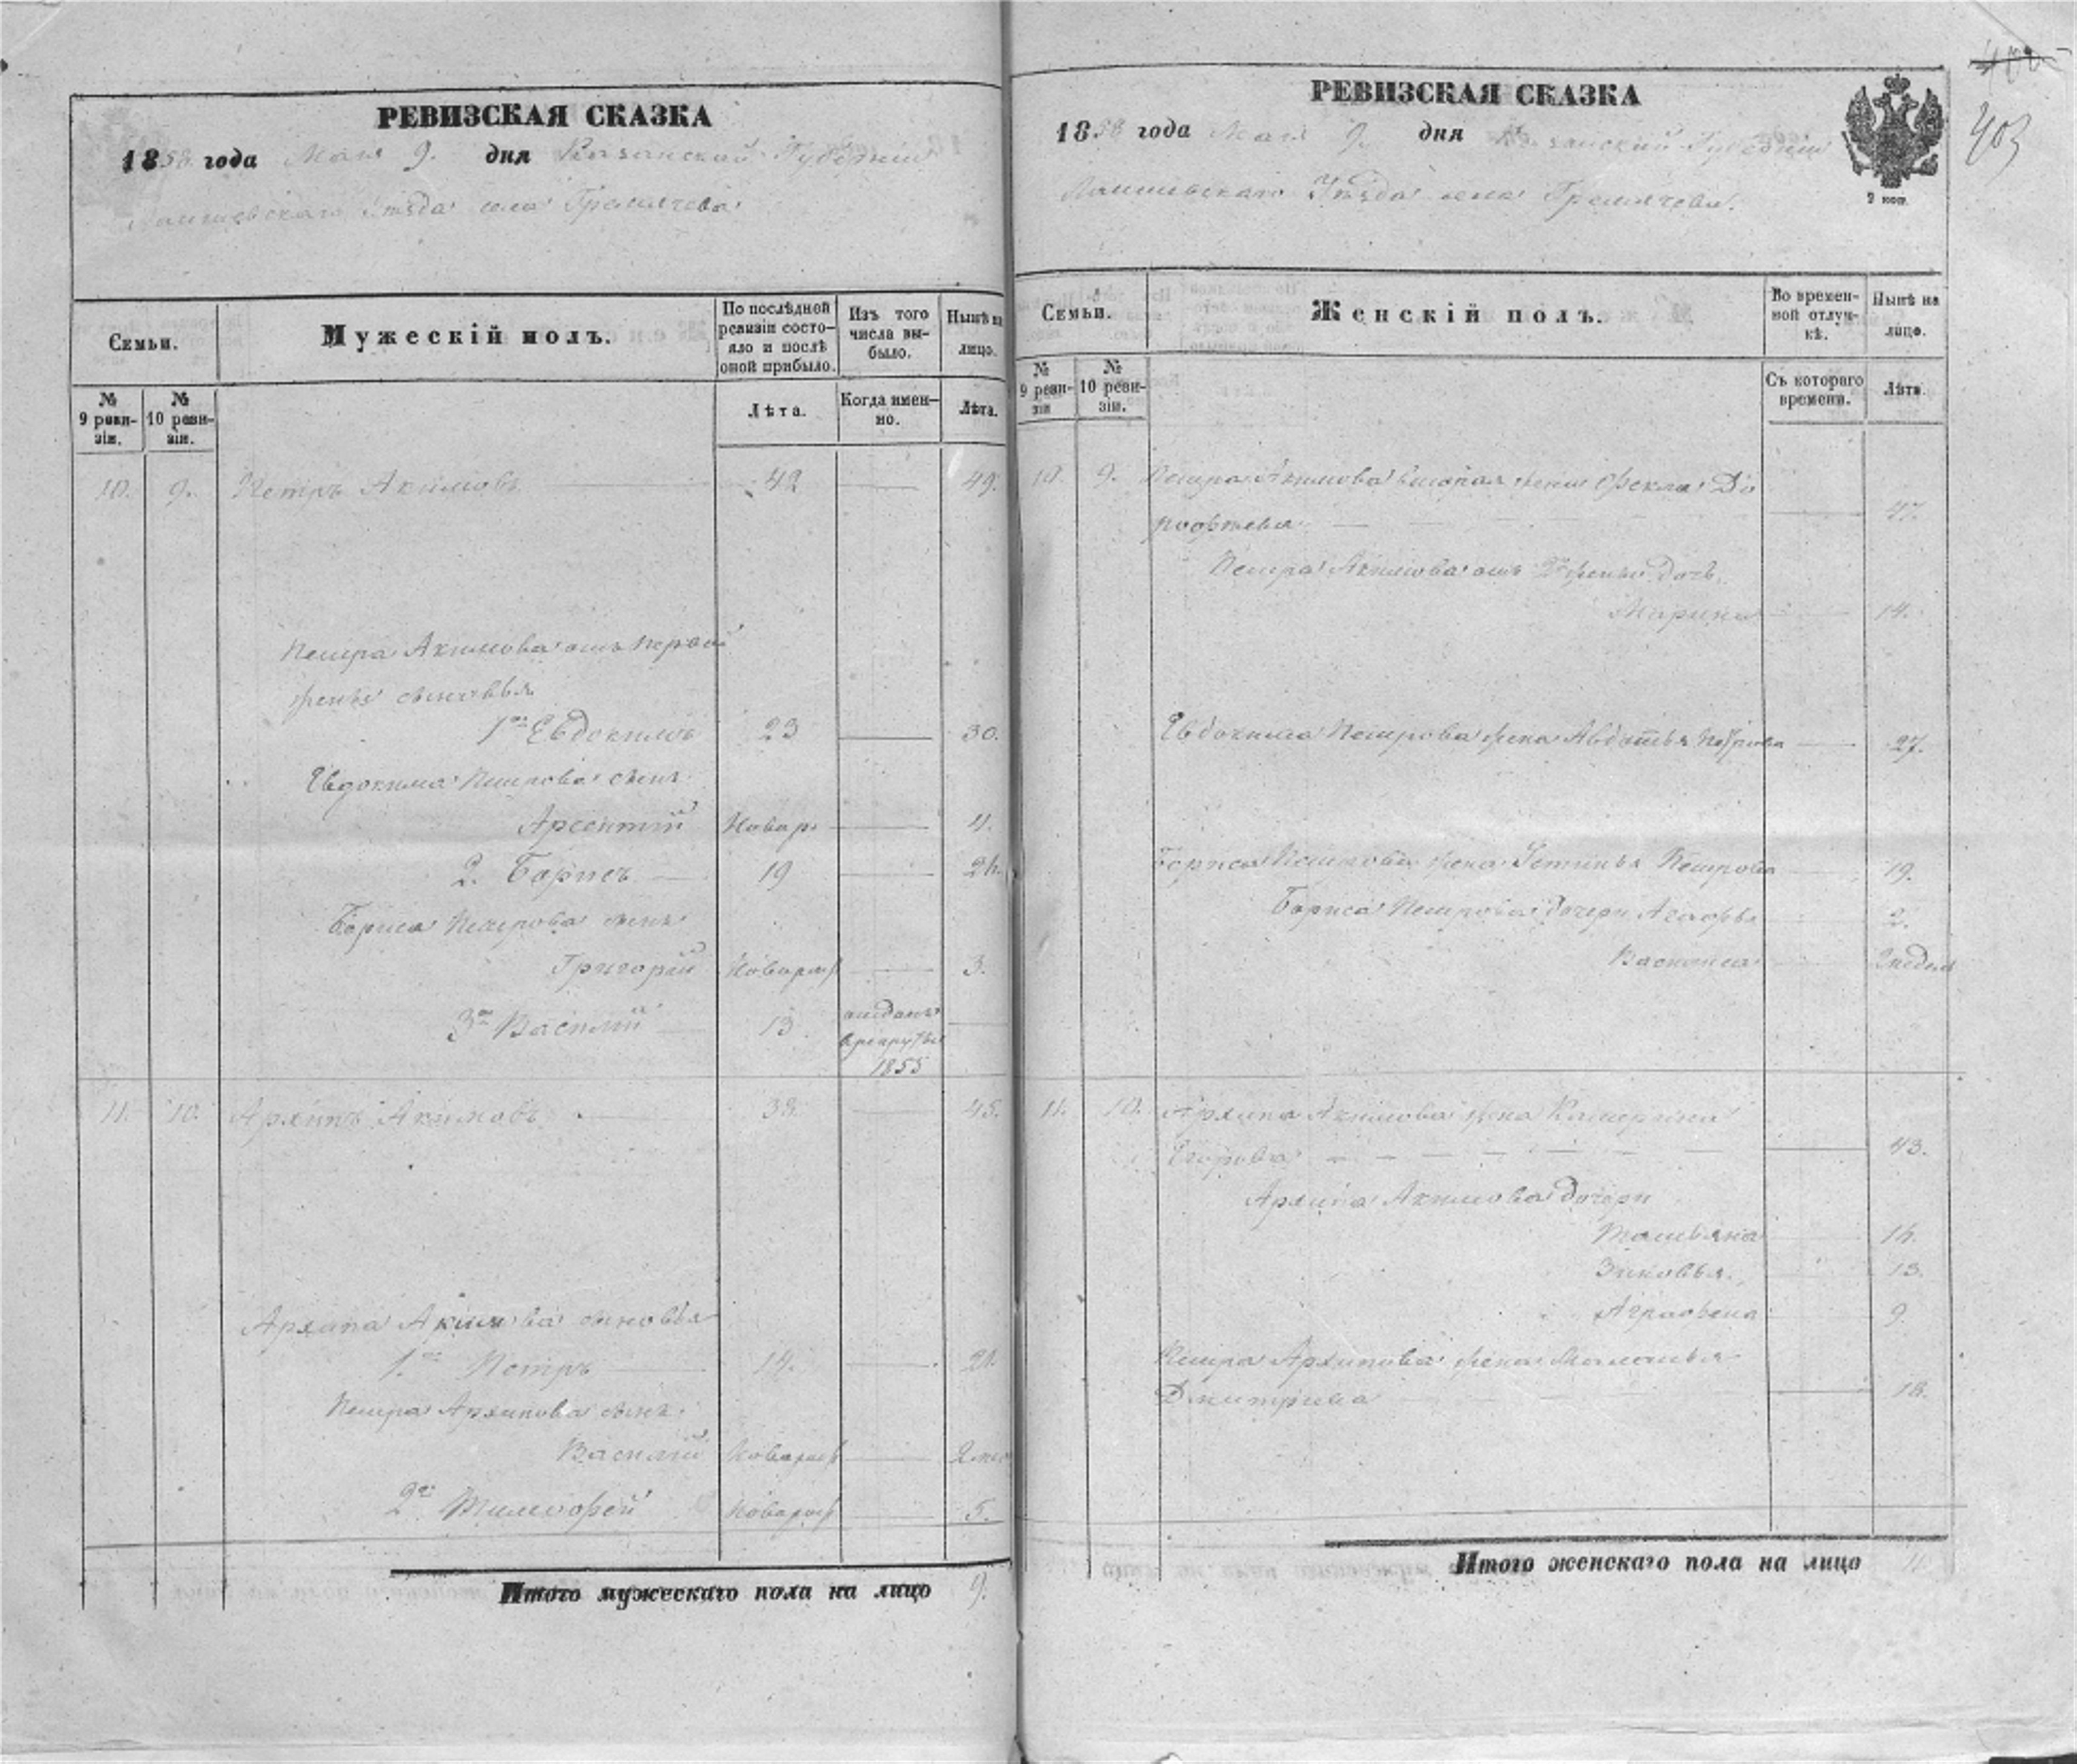 РЕВИЗСКАЯ СКАЗКА
1858 года Мая 9. дня Казанской Губерніи
Лаишевскаго Уѣзда села Гремячева
Семьи.
Мужескій полъ.
По послѣдней ревизіи состояло и послѣ оной прибыло.
Изъ того числа выбыло.
Нынѣ на лицо.
№ 9 ревизіи.
№ 10 ревизіи.
Лѣта.
Когда именно.
Лѣта.
10. 9. Петръ Акимовъ 42 49.
Петра Акимова отъ первой
жены сыновья
1й Евдокимъ 23 30.
Евдокима Петрова сынъ
Арсентій Новорж 4.
2. Борисъ 19 26.
Бориса Петрова сынъ
Григорій Новорож 3.
3й Василій 13 отданъ
в рекруты
1855
11. 10. Архипъ Акимовъ 38. 45.
Архипа Акимова сыновья
1й Петръ 14. 21.
Петра Архипова сынъ
Василій Новорож 2 ме
2й Тимофей Новорож 5.
Итого мужескаго пола на лицо 9.
400
403
РЕВИЗСКАЯ СКАЗКА
1858 года Мая 9. дня Казанской Губерніи
Лаишевскаго Уѣзда села Гремячева.
2 коп.
Семьи.
Женскій полъ.
Во временной отлучкѣ.
Нынѣ на лицо.
№ 9 ревизіи
№ 10 ревизіи.
Съ котораго времени.
Лѣта.
10. 9. Петра Акимова вторая жена Фекла До
рофеева 47.
Петра Акимова отъ 2й жены дочь
Марина 14.
Евдокима Петрова жена Авдотья Петрова 27.
Бориса Петрова жена Устинья Петрова 19.
Бориса Петрова дочери Агафья 2.
Василиса 2 недел
11. 10. Архипа Акимова жена Катерина
Егорова 43.
Архипа Акимова дочери
Татьяна 16.
Зиновья 13.
Аграфена 9.
Петра Архипова жена Маланья
Дмитриева 18.
Итого женскаго пола на лицо